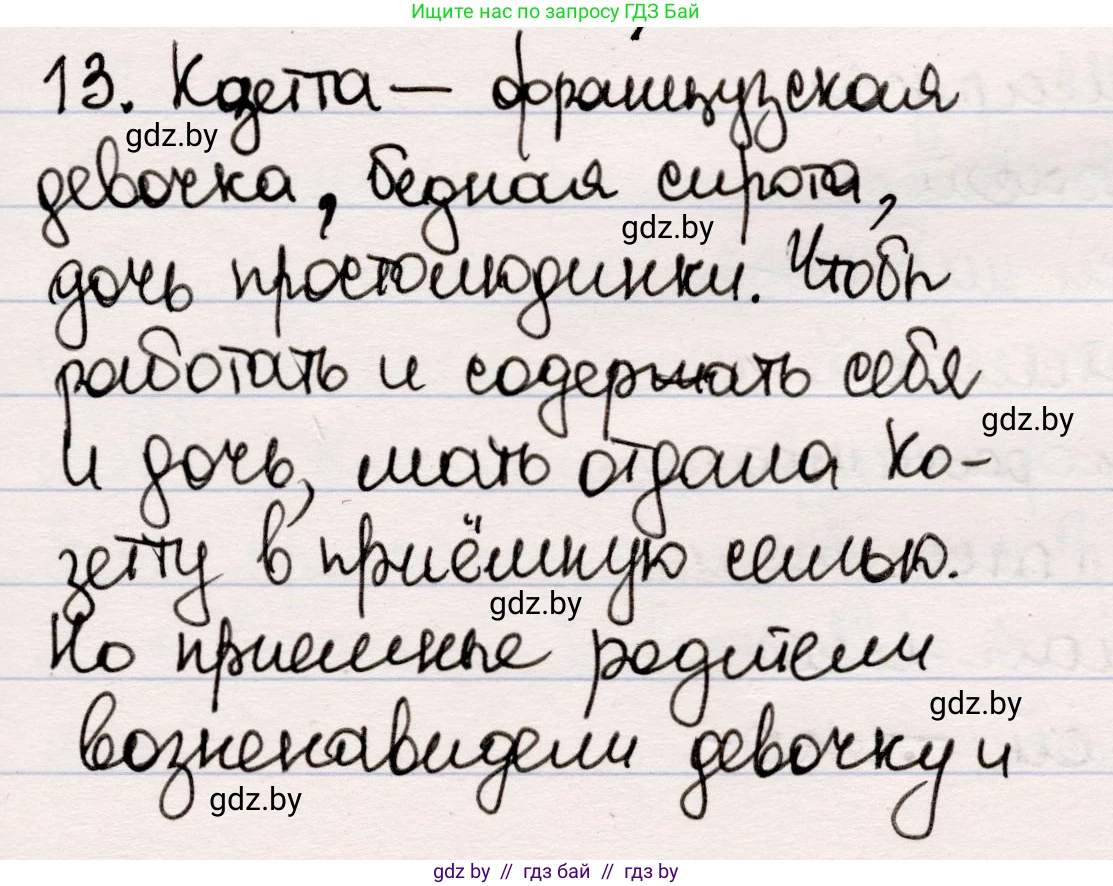 Ищите нас по запросу ГДЗ Бай
13. Козетта — французская
gdz.by
девочка, бедная сирота,
gdz.by
дочь простолюдинки. Чтобы
работать и содержать себя
gdz.by
и дочь, мать отдала Ко-
зетту в приёмную семью.
gdz.by
Но приемные родители
gdz.by
возненавидели девочку и
gdz.by
gdz.by // гдз бай // гдз by